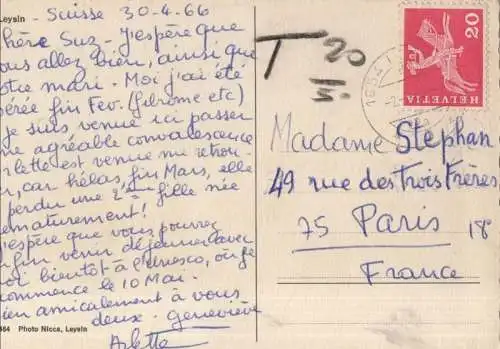 Leysin
Suisse 30-4-66
hère Suz- J'espère que
ous allez bien, ainsi que
otre mari. Moi j'ai été
pérée fin Fev. (fibrome etc)
je suis venue ici passer
ne agréable convalescence
rlette est venue me retrou
er, car hélas, fin Mars, elle
perdu une 2ème fille née
ématurément!
'espère que vous pourrez
fin venir déjeuner avec
oi bientôt à l'Unesco, où je
commence le 10 Mai.
ien amicalement à vous
deux. geneviève
Arlette
464 Photo Nicca, Leysin
T 20
HELVETIA
20
1854
Madame Stephan
49 rue des Trois Frères
75 Paris 18
France